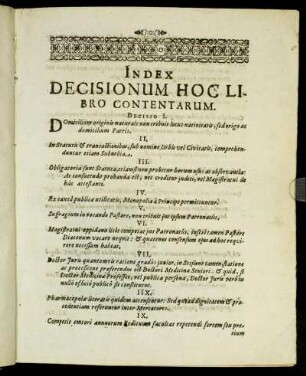 INDEX
DECISIONUM HOC LI-
BRO CONTENTARUM.
DECISIO I.
DOmicilium originis naturale non tribuit locus nativitatis, sed origo ac
domicilium Patris.
II.
In Statutis & transactionibus, sub nomine Urbis vel Civitatis, comprehen-
duntur etiam Suburbia.
III.
Obligatoria sunt Statuta, etiamsi non probetur horum usus ac observantia:
At consuetudo probanda est; nec creditur judici, vel Magistratui de
hac attestante.
IV.
Ex causâ publica utilitatis, Monopolia à Principe permittuntur.
V.
Suffragium in vocando Pastore, non tribuit jus ipsum Patronatûs.
VI.
Magistratui oppidano licet competat jus Patronatûs, tamen Pastorem
Diaconum vocare nequit: & quatenus consensum ejus adhoc requi-
rere necessum habeat.
VII.
Doctor Juris quantumvis ratione gradûs junior, in Sessione tamen statione
ac processione præferendus est Doctori Medicinæ Seniori: & quid, si
Doctor Medicinæ Professor, vel publica persona, Doctor Juris verò in
nullo officio publico sit constitutus.
IIX.
Pharmacopolæ literatis quidem accensentur: Sed quoad dignitatem &
præcedentiam referuntur inter Mercatores.
IX.
Competit censori annuorum redituum facultas repetendi sortem seu pre-
tium